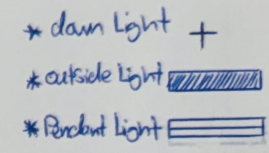 * down Light
* outside Light
* Pendant Light